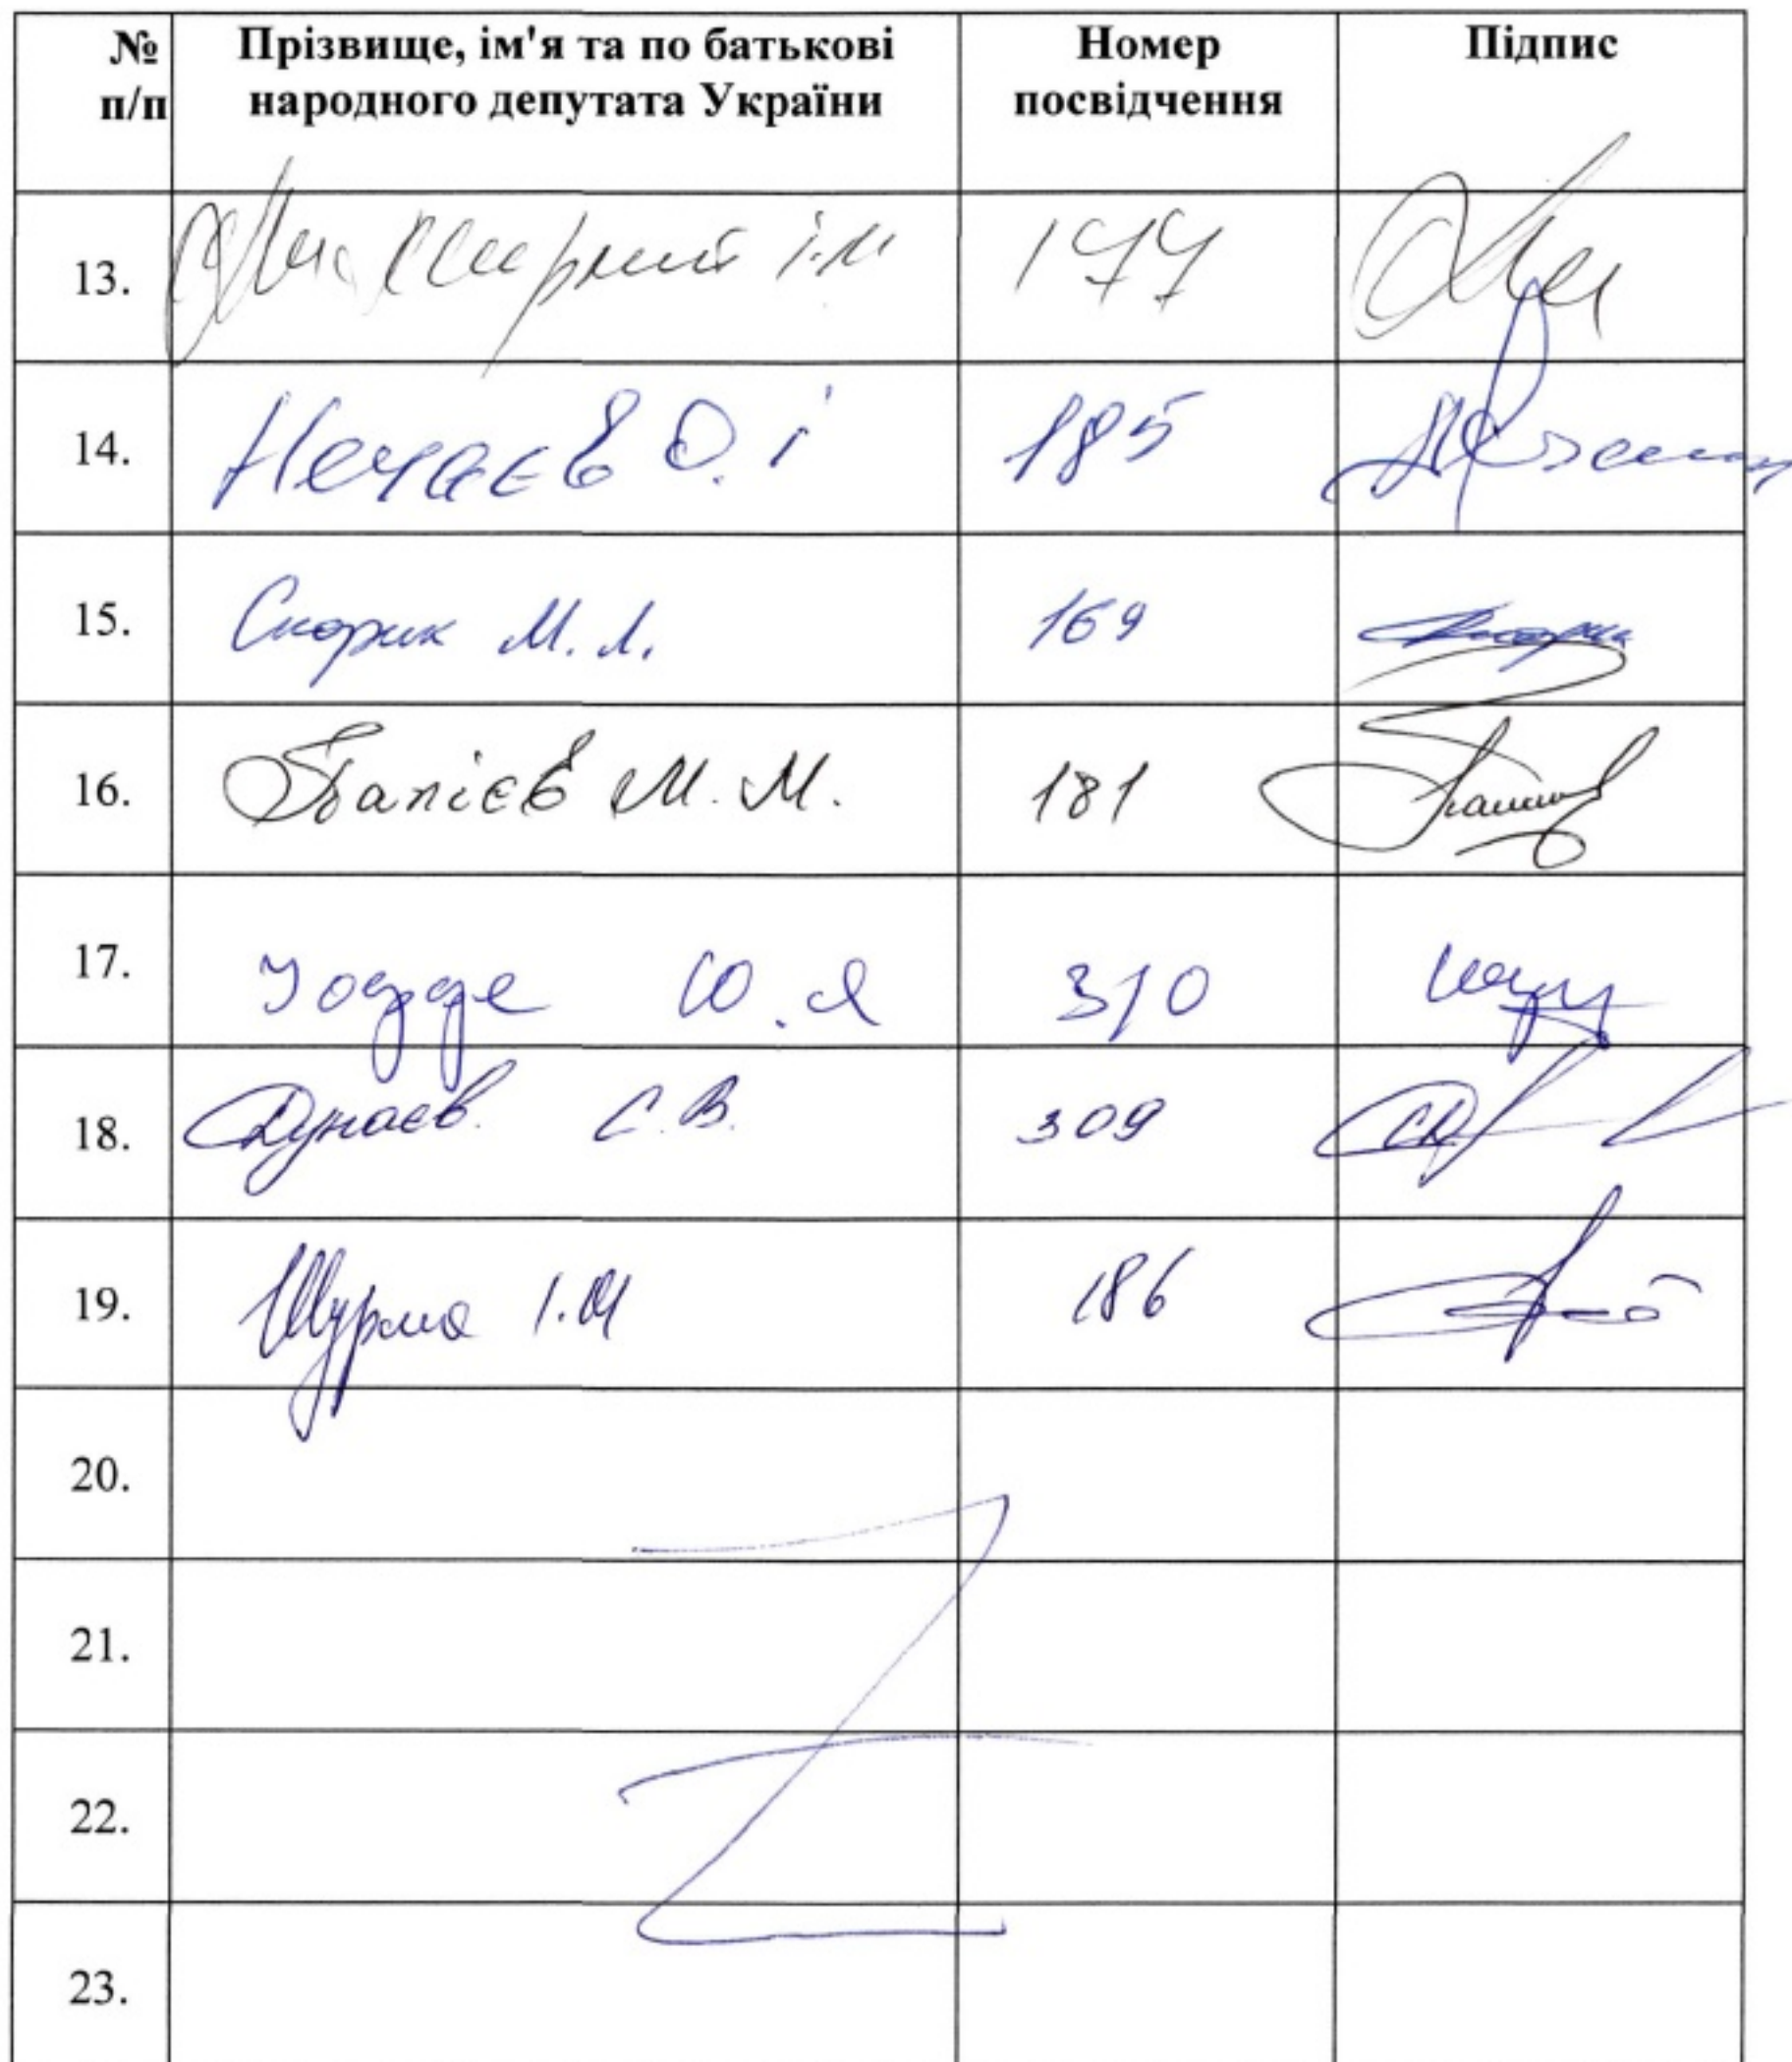 № п/п Прізвище, ім'я та по батькові народного депутата України Номер посвідчення Підпис
13. і.м 177
14. Нечаєв О. І 185
15. Скорик М. Л. 169
16. Папієв М. М. 181
17. Іоффе Ю. Я 310
18. Дунаєв С. В. 309
19. Шурма І. М 186
20.
21.
22.
23.